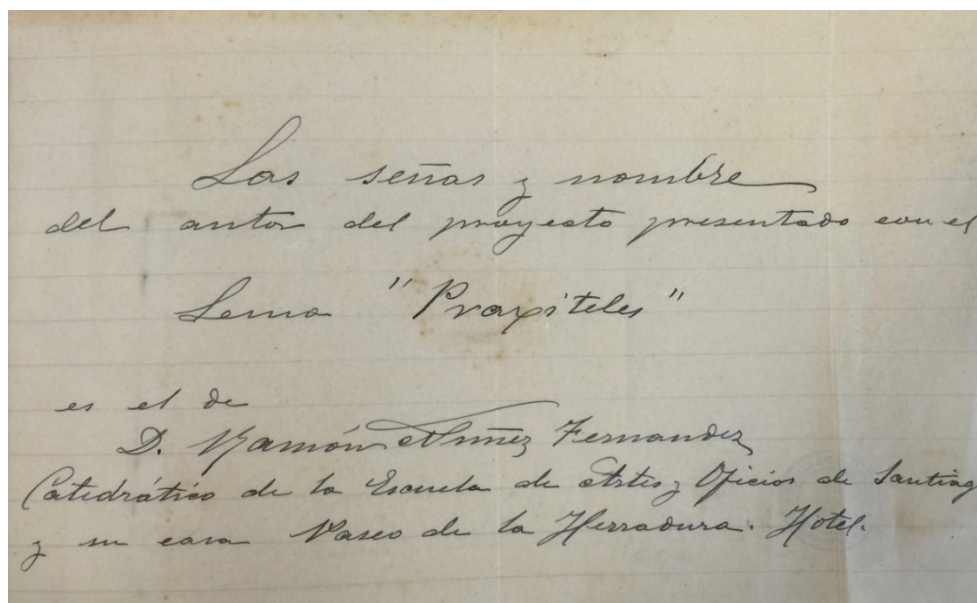 Las señas y nombre
del autor del proyecto presentado con el
Lema "Praxiteles"
es el de
D. Ramón Nuñez Fernandez
Catedrático de la Escuela de Artes y Oficios de Santiag
y su casa Paseo de la Herradura. Hotel.